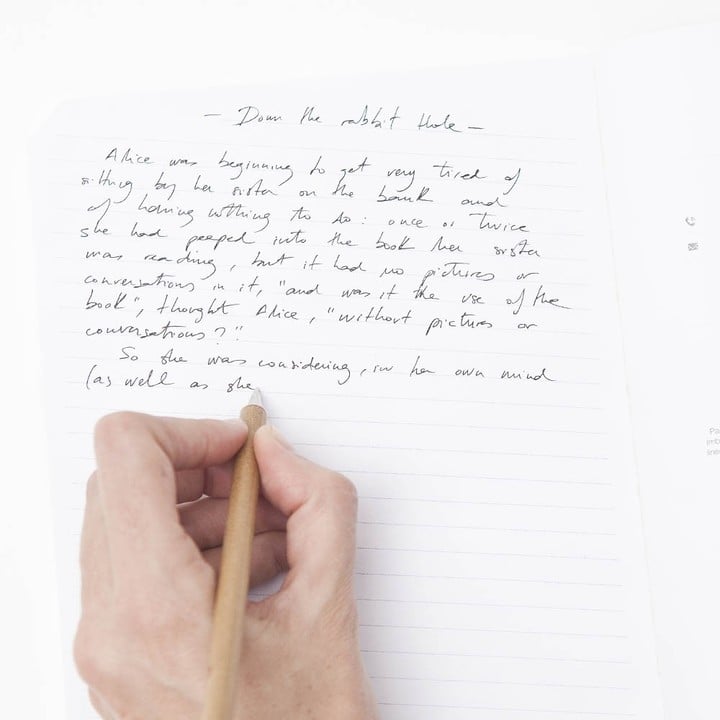 — Down the rabbit Hole —
Alice was beginning to get very tired of
sitting by her sister on the bank and
of having nothing to do: once or twice
she had peeped into the book her sister
was reading, but it had no pictures or
conversations in it, "and was it the use of the
book", thought Alice, "without pictures or
conversations?"
So she was considering, in her own mind
(as well as she